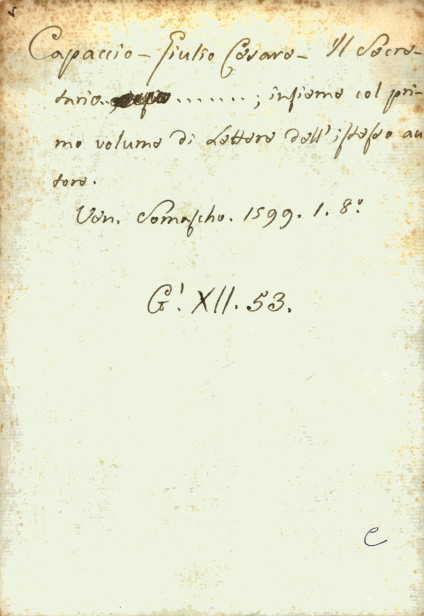 Capaccio - Giulio Cesare - Il Secre-
tario ........; insieme col pri-
mo volume di Lettere dell'istesso au
tore.
Ven. Somascho. 1599. 1. 8.°
G'. XII. 53.
C